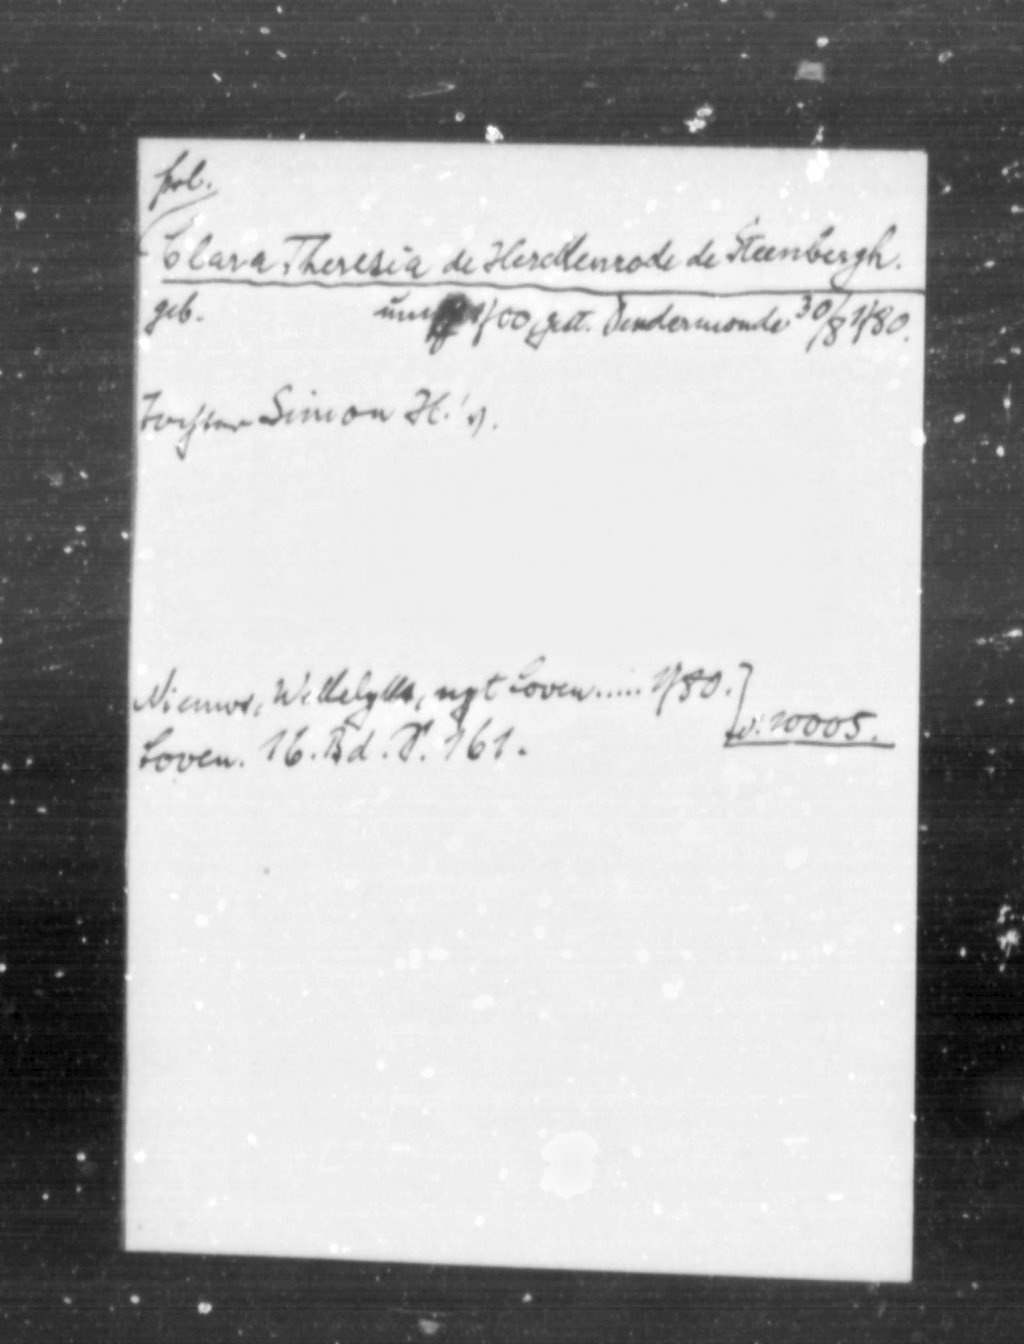 kol.
Clara Theresia de Herckenrode de Steenbergh.
geb. um 1700, gest. Dendermonde 30/8 1780.
Tochter Simon H.'s.
Nieuws, Wekelyks, uyt Loven..... 1780.
Loven. 16. Bd. P. 161. v: 10005.